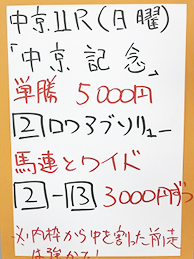 中京11R(日曜)
「中京記念」
単勝 5000円
2 ロワアブソリュー
馬連とワイド
2-13 3000円ずつ
※内枠から中を割った前走
は強かった!